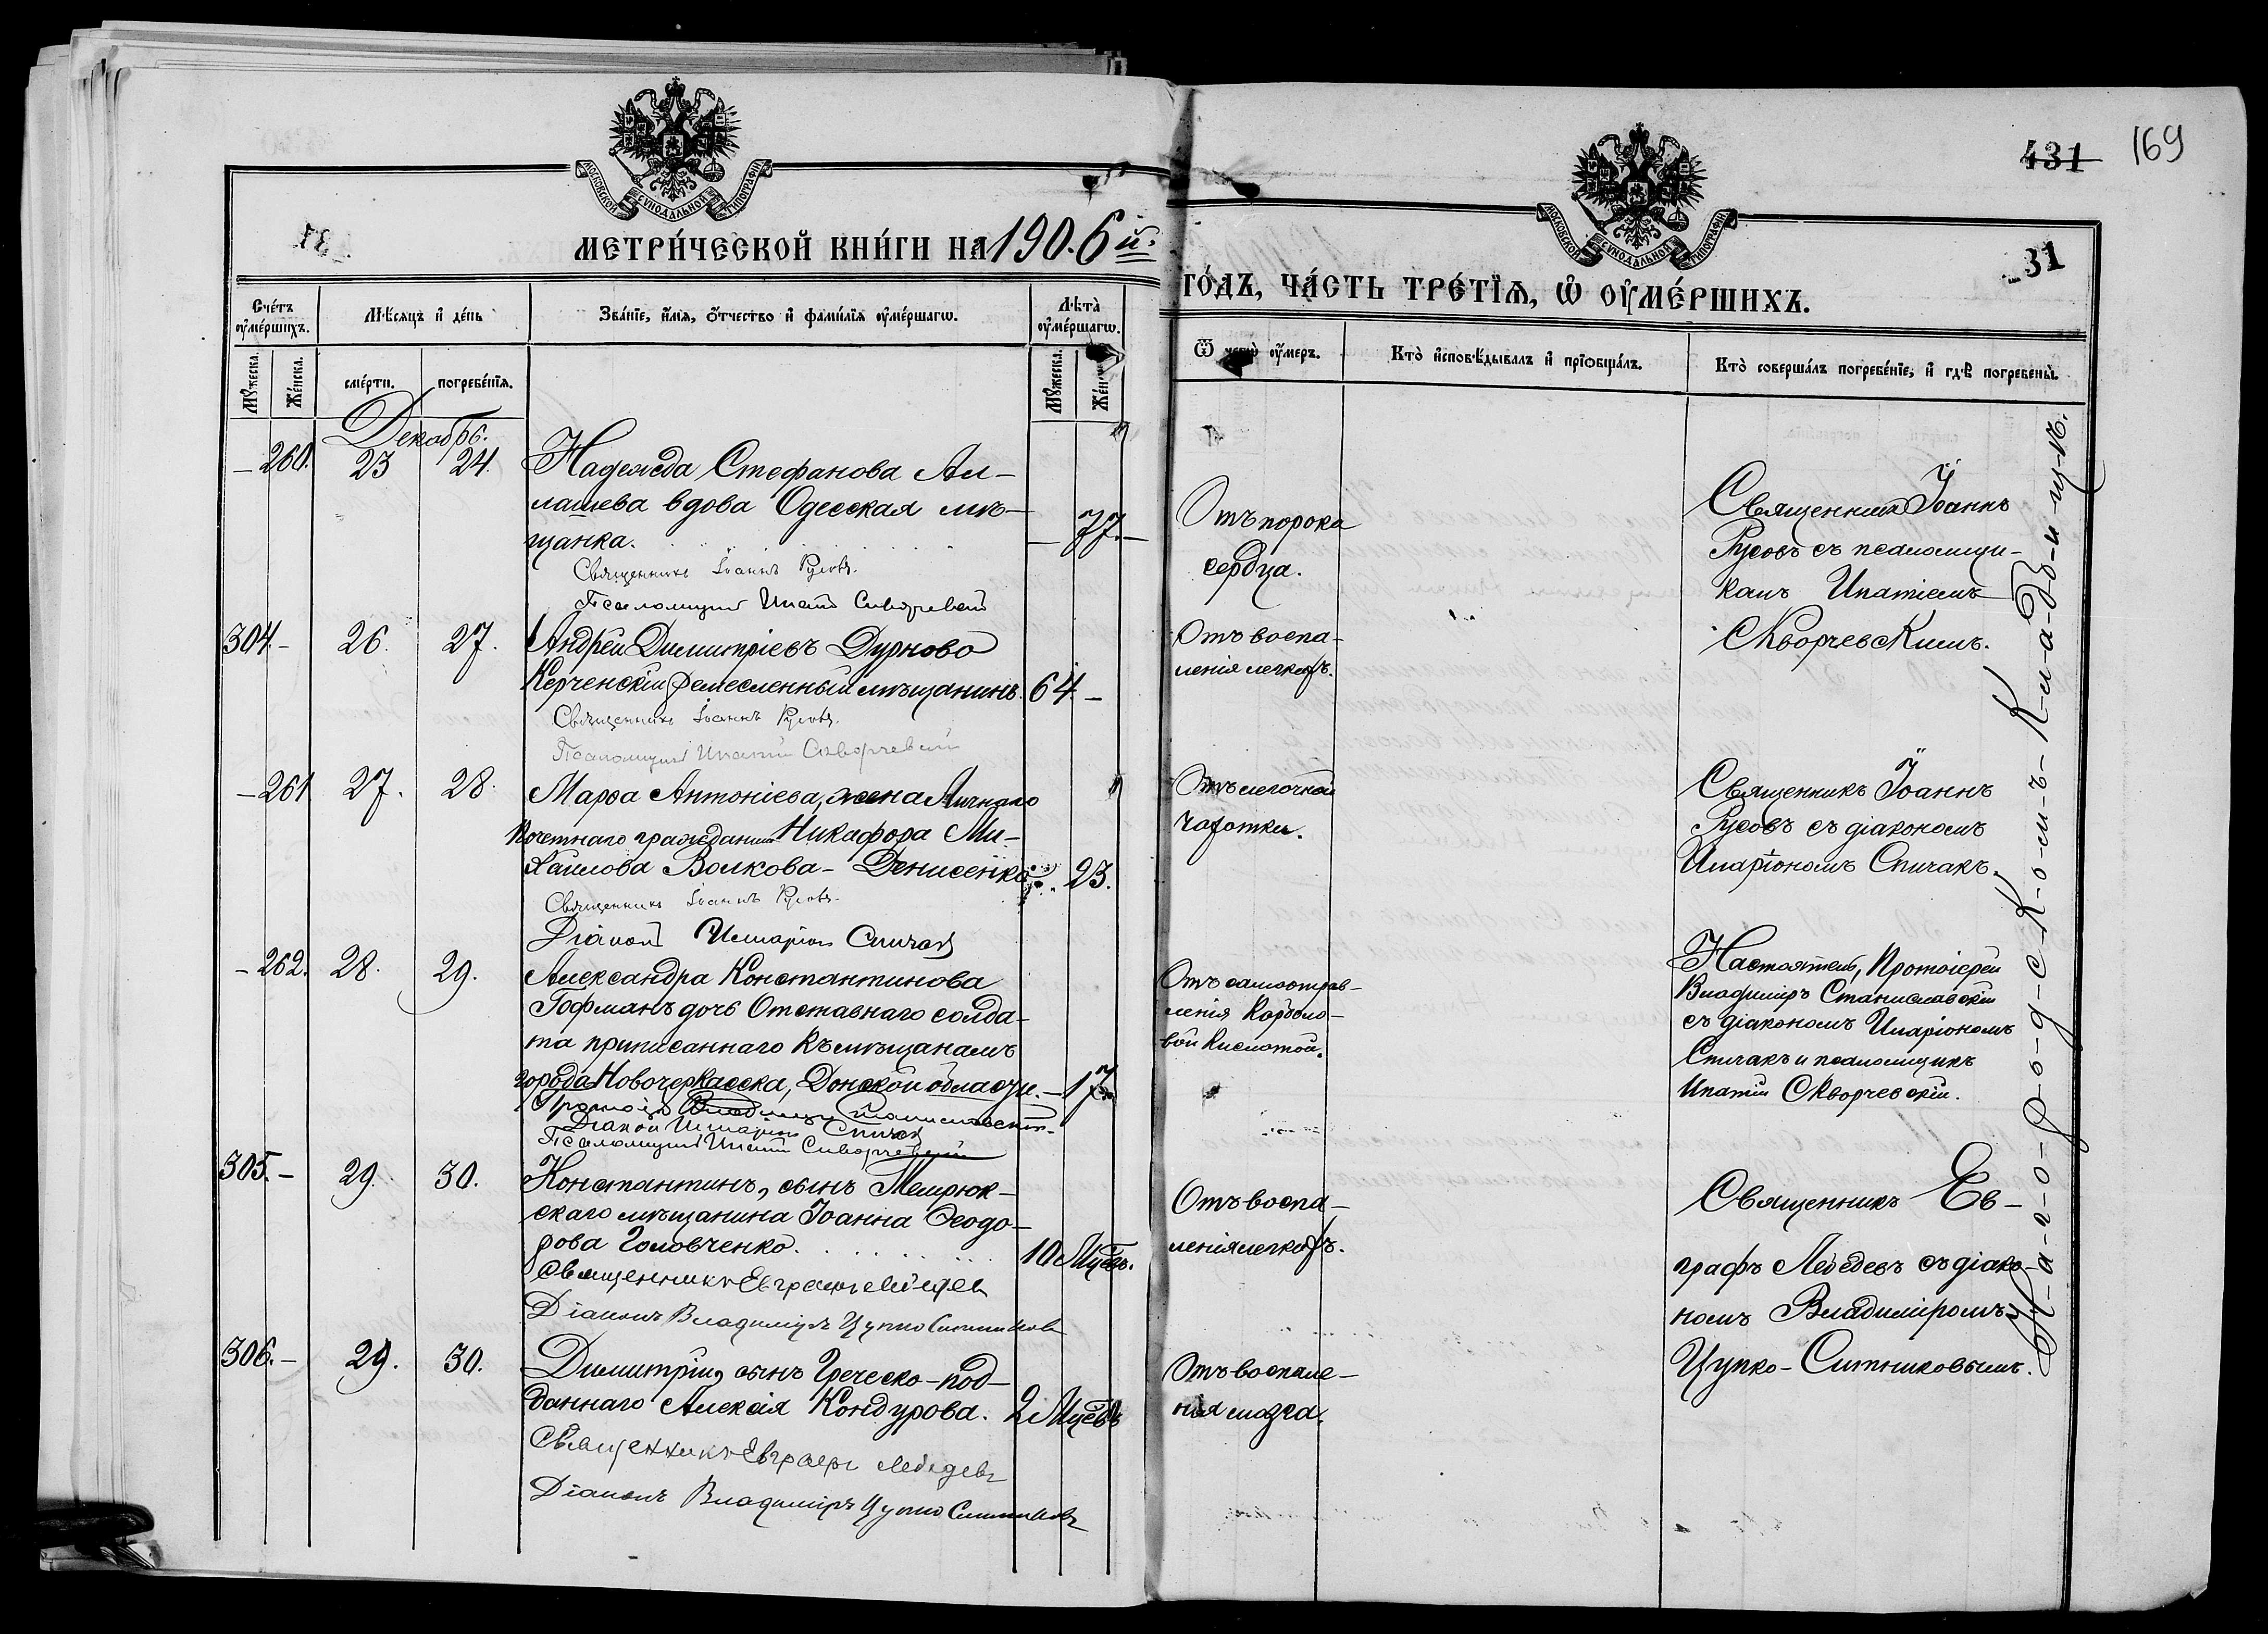 431 169
МОСКОВСКОЙ СУНОДАЛЬНОЙ ТИПОГРАФІИ
МОСКОВСКОЙ СУНОДАЛЬНОЙ ТИПОГРАФІИ
МЕТРИ́ЧЕСКОЙ КНИ́ГИ НА 190.6й.
ГО́ДЪ, ЧА́СТЬ ТРЕ́ТІѦ, Ѡ҆ ОУ҆МЕ́РШИХЪ.
31
Сче́тъ оу҆ме́ршихъ.
Мѣ́сяцъ и҆ де́нь
Зва́нїе, и҆́мя, ѻ҆́тчество и҆ фами́лїя оу҆ме́ршагѡ.
Лѣта̀ оу҆ме́ршагѡ.
Му́жеска.
Же́нска.
сме́рти.
погребе́нїя.
Му́жеска.
Ѿ чегѡ̀ оу҆́меръ.
Кто̀ и҆сповѣ́дывалъ и҆ прїѡбща́лъ.
Кто̀ соверша́лъ погребе́нїе, и҆ гдѣ̀ погребены̀.
Декабрь.
– 260. 23 24. Надежда Стефанова Ал-
лашева вдова Одесская мѣ-
щанка. — 77.—
Священникъ Іоаннъ Русовъ.
Псаломщикъ Ипатій Скворчевскій
Отъ порока
сердца.
Священник Іоаннъ
Русовъ съ псаломщи-
комъ Ипатіемъ
Скворчевскимъ.
304.– 26. 27. Андрей Димитріевъ Дурново
Керченскій ремесленный мѣщанинъ. 64.–
Священникъ Іоаннъ Русовъ.
Псаломщикъ Ипатій Скворчевскій
Отъ воспа-
ленія легкихъ.
– 261 27. 28. Марѳа Антоніева, жена Личнаго
Почетнаго гражданина Никифора Ми-
хаилова Волкова – Денисенко 23.
Священникъ Іоаннъ Русовъ.
Діаконъ Иларіонъ Спичакъ
Отъ легочной
чахотки.
Священникъ Іоаннъ
Русовъ съ діакономъ
Иларіономъ Спичакъ.
– 262. 28. 29. Александра Константинова
Гофманъ дочь Отставнаго солда-
та приписаннаго къ мѣщанамъ
города Новочеркасска, Донской области. — 17.
Протоіерей Владиміръ Станиславскій
Діаконъ Иларіонъ Спичакъ
Псаломщикъ Ипатій Скворчевскій
Отъ самоотрав-
ленія Карболо-
вой кислотой.
Настоятель, Протоіерей
Владиміръ Станиславскій
съ діакономъ Иларіономъ
Спичакъ и псаломщикъ
Ипатій Скворчевскій.
305.– 29. 30. Константинъ, сынъ Темрюк-
скаго мѣщанина Іоанна Ѳеодо-
рова Головченко. 10 Мцевъ.
Священникъ Евграфъ Лебедевъ
Діаконъ Владиміръ Цупко Ситниковъ
Отъ воспа-
ленія легкихъ.
Священникъ Ев-
графъ Лебедевъ съ діако-
номъ Владиміромъ
Цупко-Ситниковымъ.
306.– 29. 30. Димитрій, сынъ Греческо-под-
даннаго Алексія Кондурова. 2 Мцевъ
Священникъ Евграфъ Лебедевъ
Діаконъ Владиміръ Цупко Ситниковъ
Отъ воспале-
нія мозга.
Н-а-г-о-р-о-д-с-к-о-м-ъ- К-л-а-д-б-и-щ-ѣ.